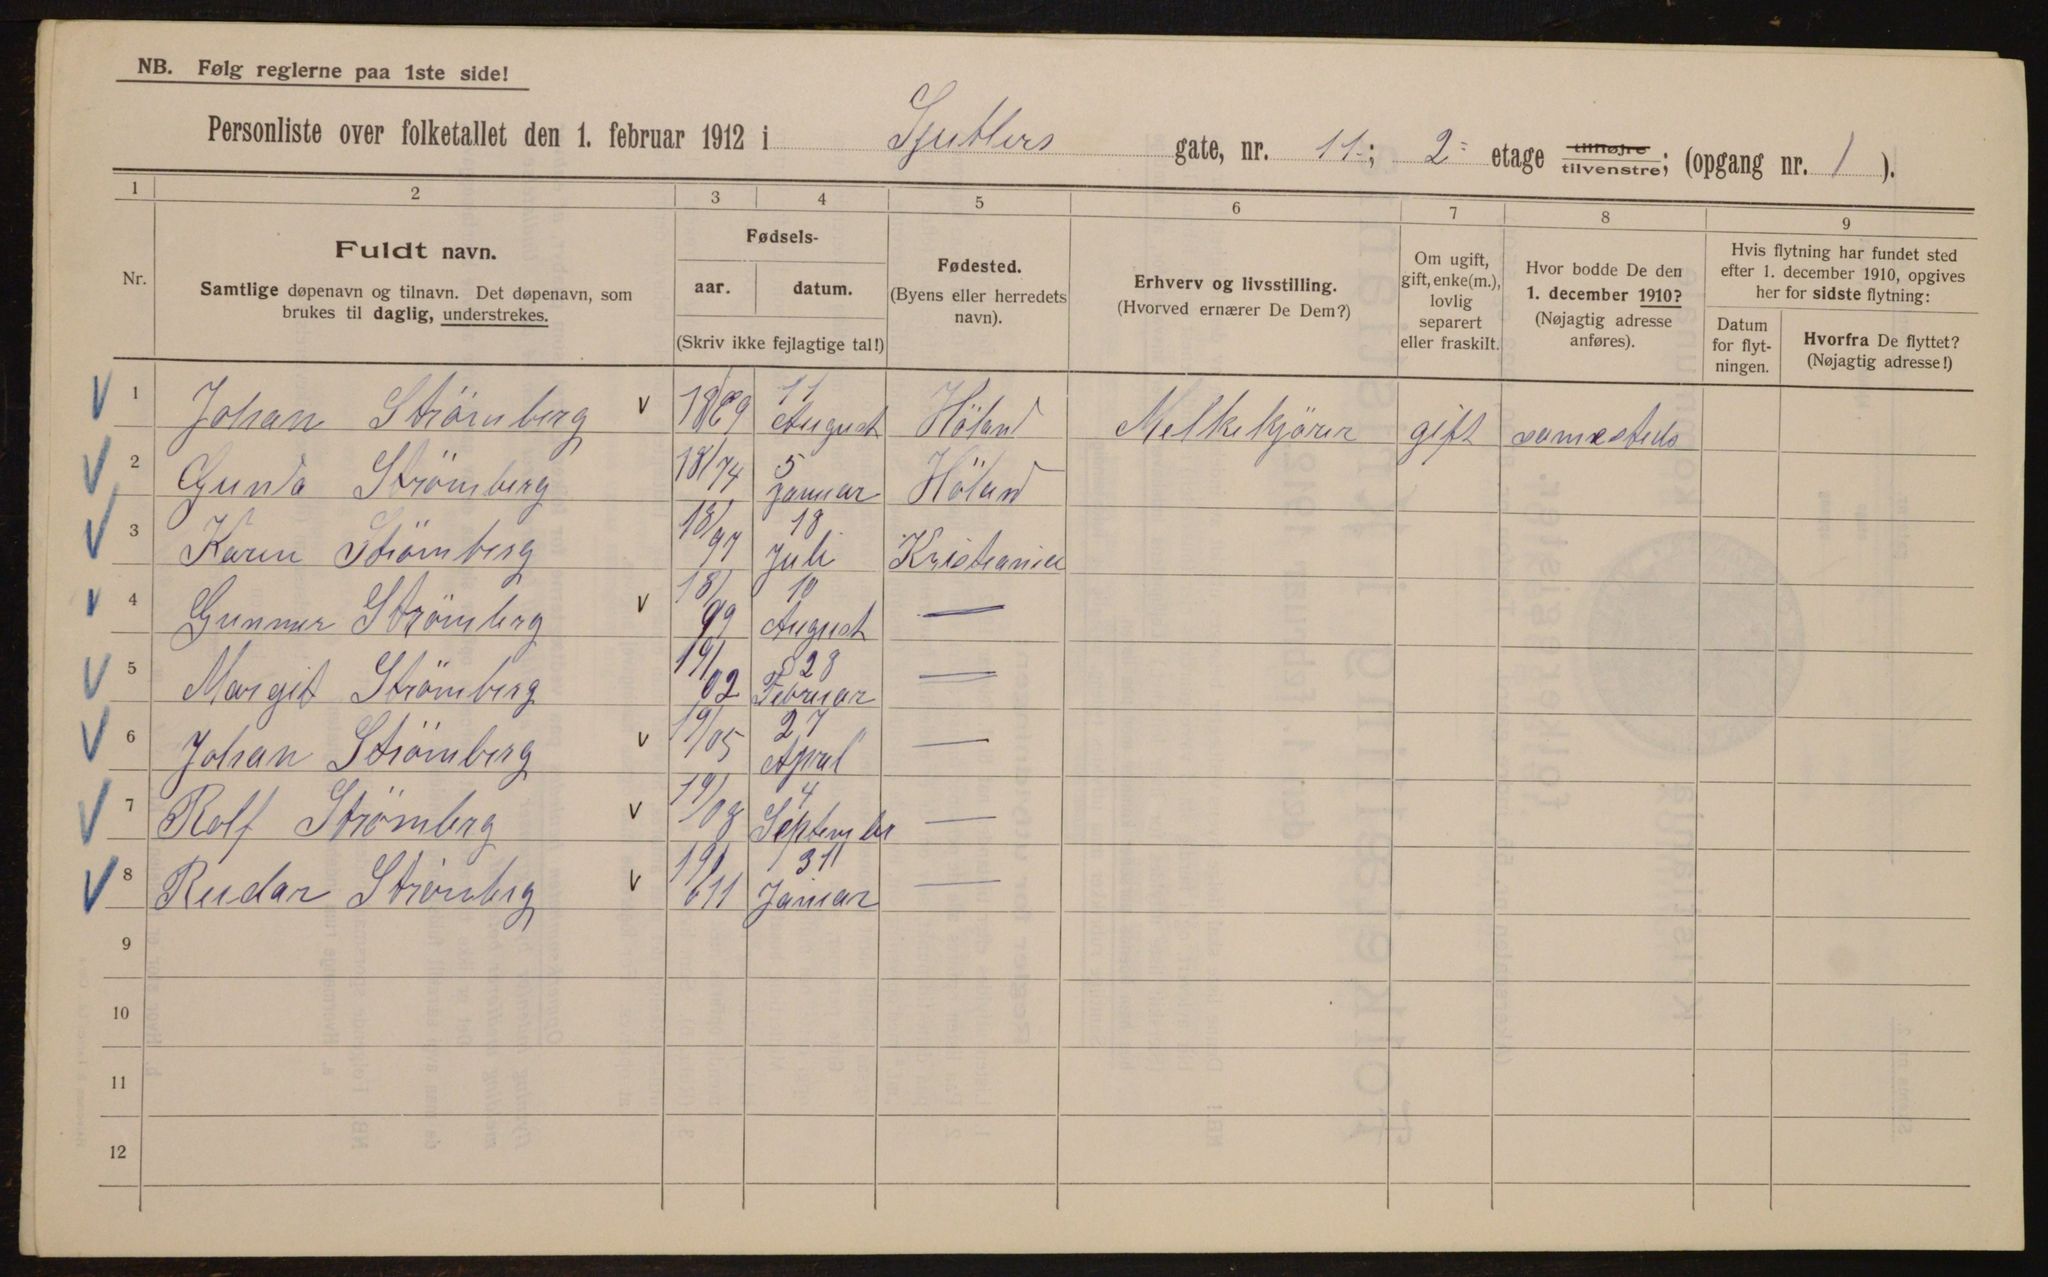 NB. Følg reglerne paa 1ste side!
Personliste over folketallet den 1. februar 1912 i Sjutlers gate, nr. 11; 2 etage tilhøjre tilvenstre; (opgang nr. 1).
1 2 3 4 5 6 7 8 9
Nr.
Fuldt navn.
Samtlige døpenavn og tilnavn. Det døpenavn, som
brukes til daglig, understrekes.
Fødsels-
aar. datum.
(Skriv ikke fejlagtige tal!)
Fødested.
(Byens eller herredets
navn).
Erhverv og livsstilling.
(Hvorved ernærer De Dem?)
Om ugift,
gift, enke(m.),
lovlig
separert
eller fraskilt.
Hvor bodde De den
1. december 1910?
(Nøjagtig adresse
anføres).
Hvis flytning har fundet sted
efter 1. december 1910, opgives
her for sidste flytning:
Datum
for flyt-
ningen.
Hvorfra De flyttet?
(Nøjagtig adresse!)
1 Johan Strömberg v 11 August Höland Melkekjörer gift samesteds
2 Gunda Strömberg 18/74 5 Januar Höland
3 Karen Strömberg 18/97 18 Juli Kristiania
4 Gunnar Strömberg v 18/99 10 August —
5 Margit Strömberg 19/02 28 Februar —
6 Johan Strömberg v 19/05 27 April —
7 Rolf Strömberg v 19/08 4 September —
8 Reidar Strömberg v 19/11 31 Januar —
9
10
11
12